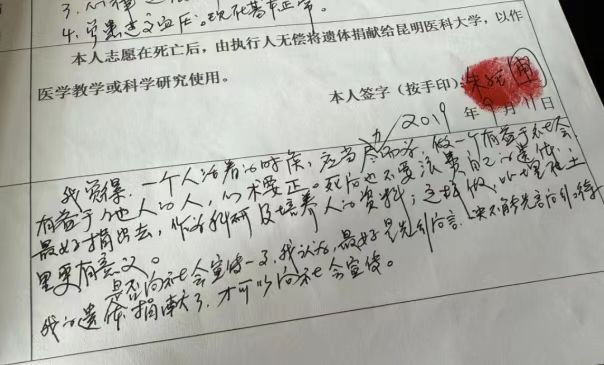 3.
4. 曾患过 现在基本正常。
本人志愿在死亡后，由执行人无偿将遗体捐献给昆明医科大学，以作
医学教学或科学研究使用。
本人签字（按手印）：朱
2019年9月1日
我觉得，一个人活着的时候，应当尽力而为，做一个有益于社会、
有益于他人的人，心术要正。死后也不要浪费自己的遗体，
最好捐出去，作为科研及培养人的资料；这样做，比埋在土
里更有意义。
是否向社会宣传一下，我认为，最好是先别宣言，决不能先言而后
我的遗体捐献了，才可以向社会宣传。